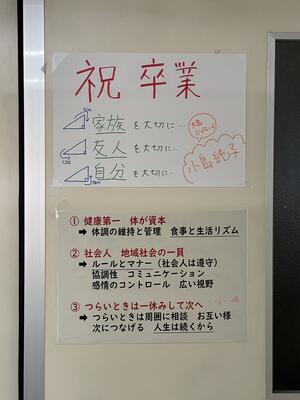 祝 卒業
sin
家族 を大切に…
cos
友人 を大切に…
tan
自分 も大切に…
小島純子
① 健康第一 体が資本
➡ 体調の維持と管理 食事と生活リズム
② 社会人 地域社会の一員
➡ ルールとマナー（社会人は遵守）
協調性 コミュニケーション
感情のコントロール 広い視野
③ つらいときは一休みして次へ
➡ つらいときは周囲に相談 お互い様
次につなげる 人生は続くから